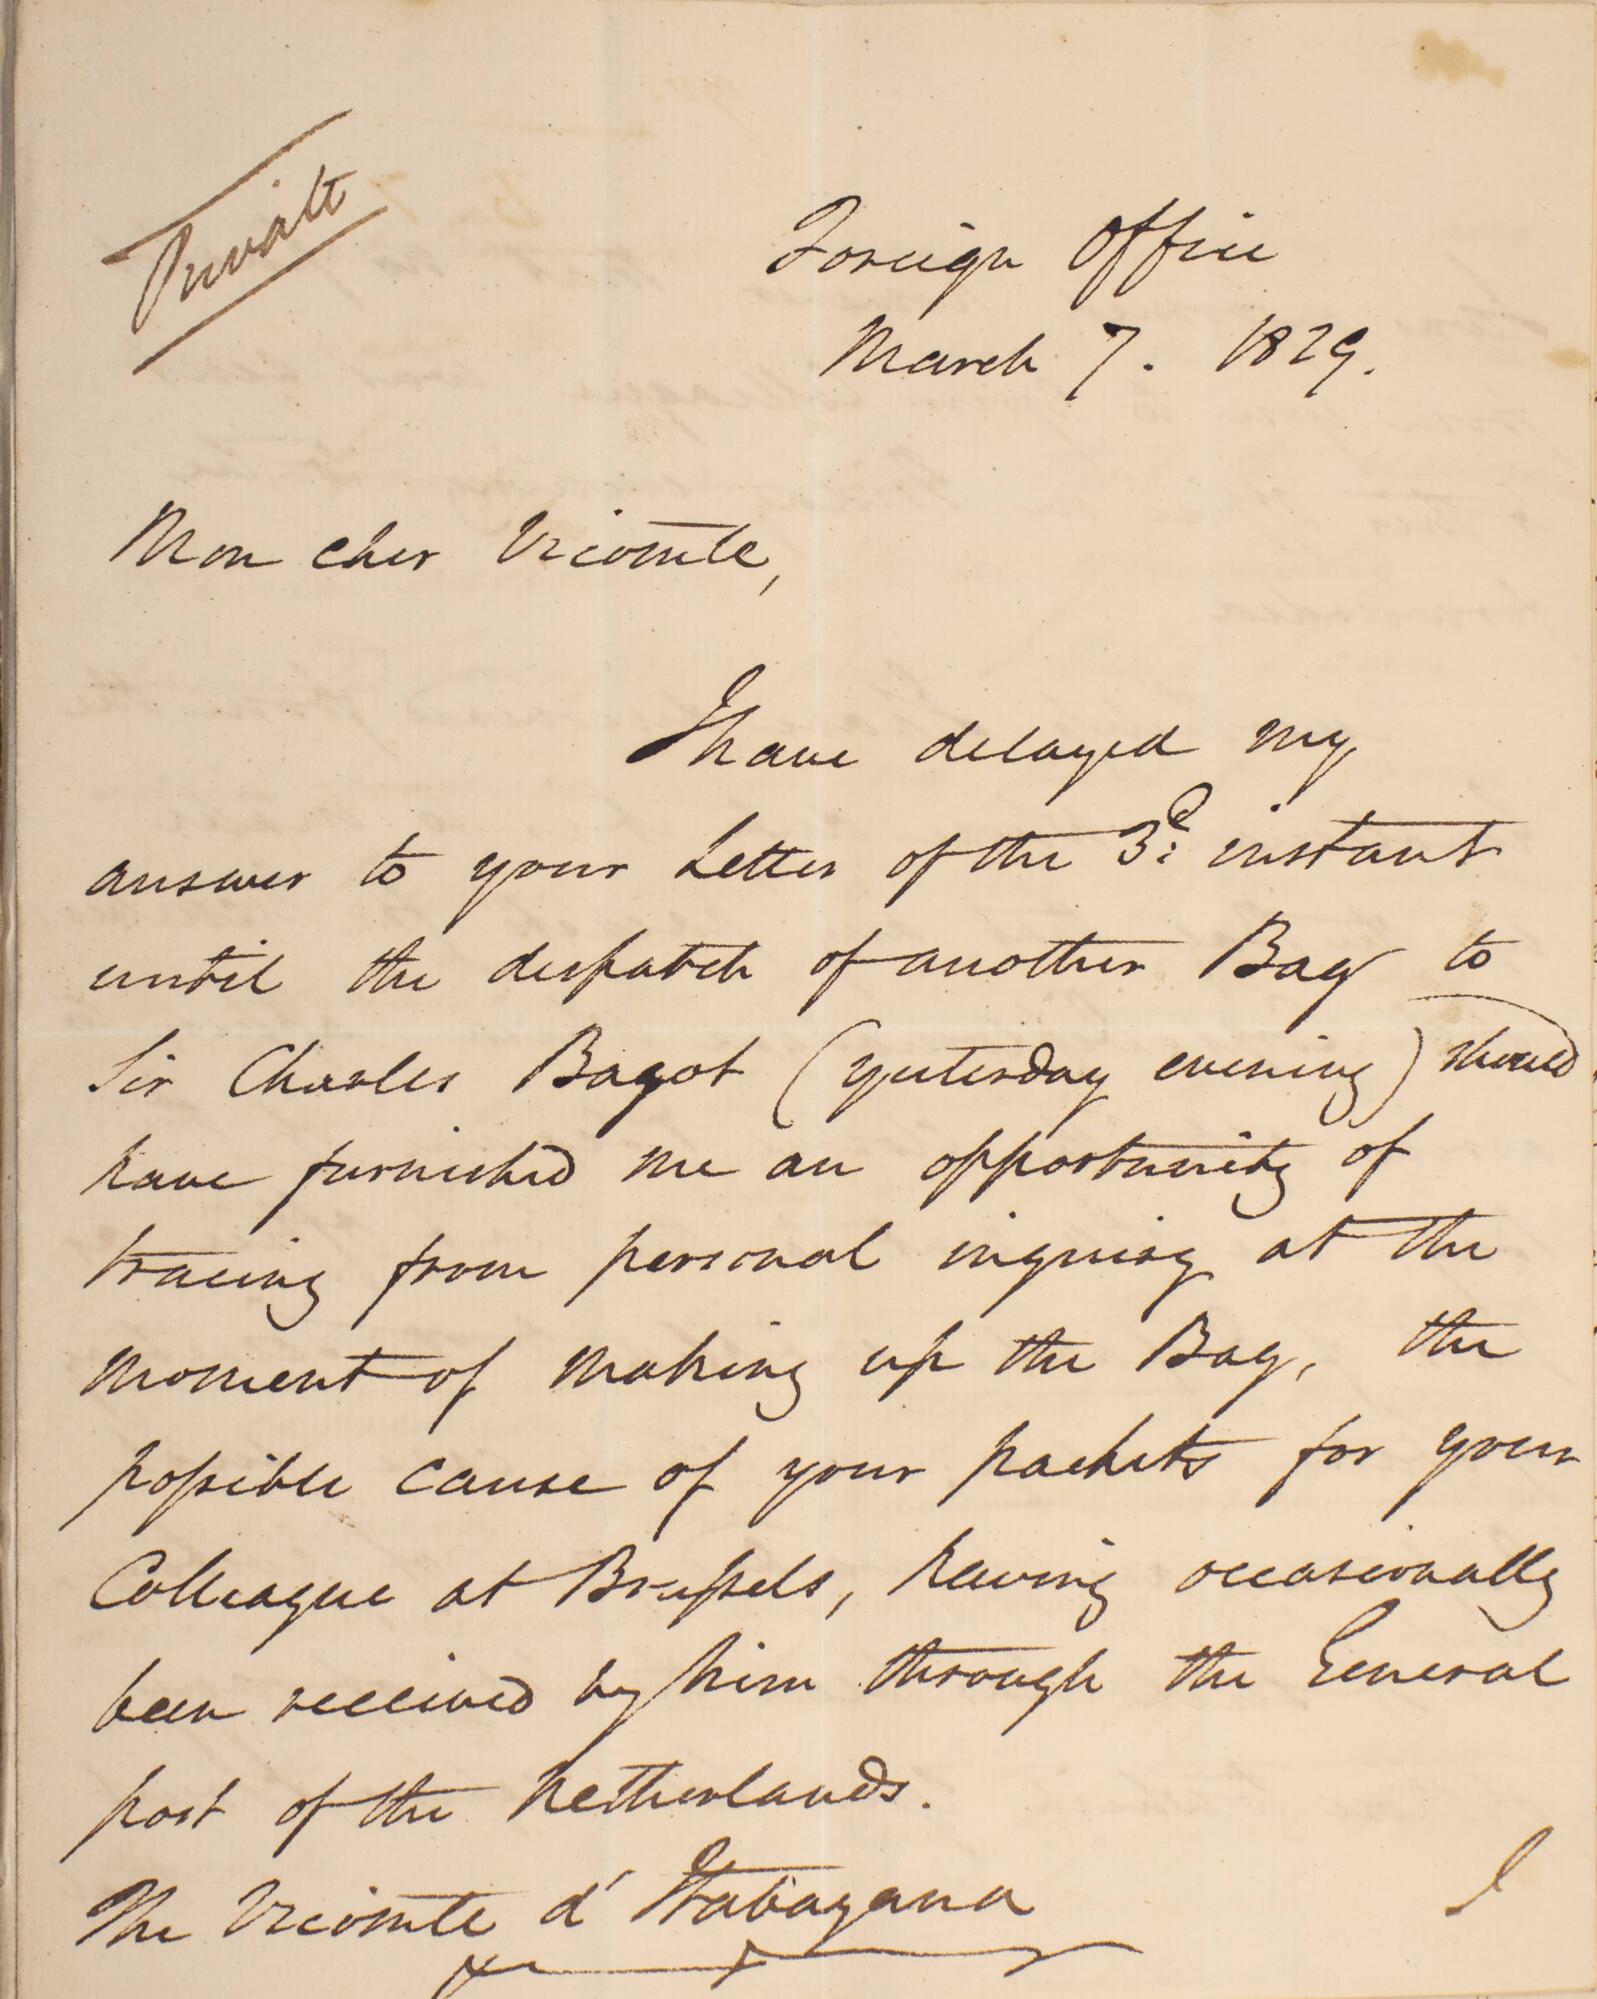 Private
Foreign Office
March 7. 1829.
Mon cher Vicomte,
I have delayed my
answer to your Letter of the 3d: instant
until the despatch of another Bag to
Sir Charles Bagot (yesterday evening) should
have furnished me an opportunity of
tracing from personal inquiry at the
moment of making up the Bag, the
possible cause of your packets for your
Colleague at Brussels, having occasionally
been received by him through the General
post of the Netherlands.
The Vicomte d' Itabayana
I